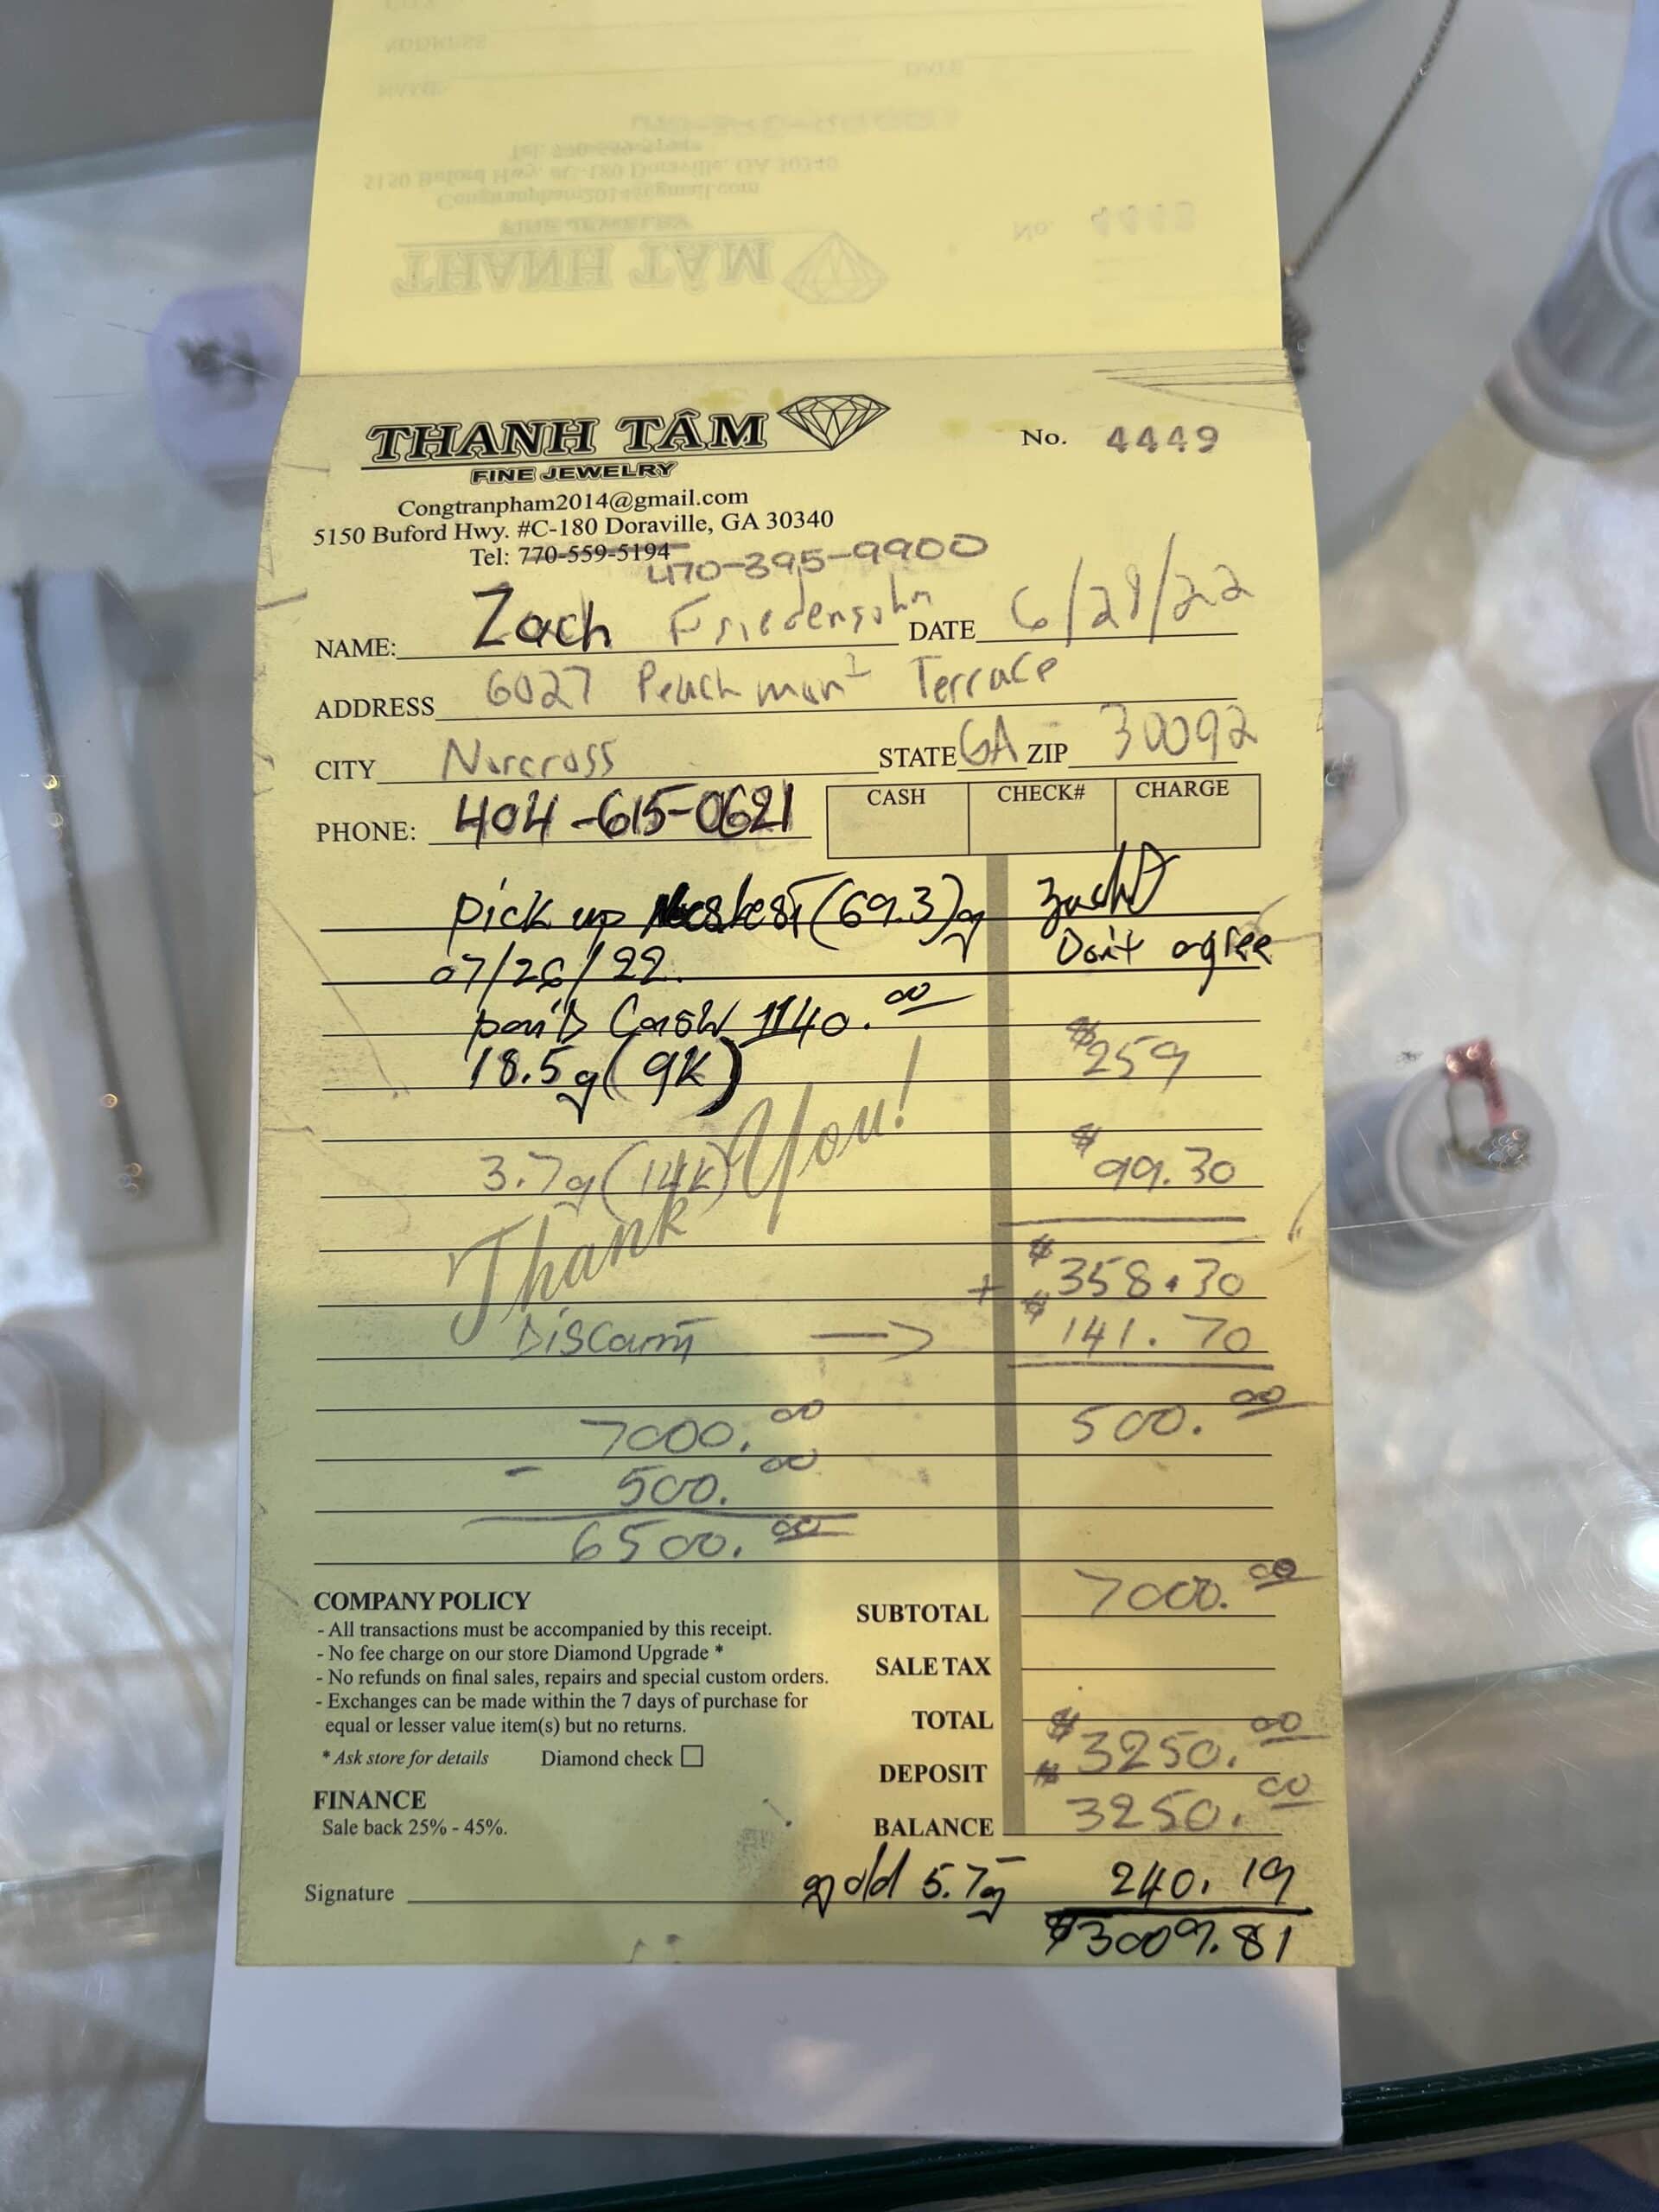 THANH TÂM
FINE JEWELRY
No. 4449
Congtranpham2014@gmail.com
5150 Buford Hwy. #C-180 Doraville, GA 30340
Tel: 770-559-5194
470-395-9900
NAME: Zach Friedensohn DATE 6/28/22
ADDRESS 6027 Peachmont Terrace
CITY Norcross STATE GA ZIP 30092
PHONE: 404-615-0621 CASH CHECK# CHARGE
pick up (69.3)g
Don't agree
07/26/22
paid Cash 1140.00
18.5g (9K) $259
3.7g (14K) $99.30
Thank You!
$358.30
Discount → + $141.70
7000.00 500.00
- 500.00
6500.00
COMPANY POLICY
- All transactions must be accompanied by this receipt.
- No fee charge on our store Diamond Upgrade *
- No refunds on final sales, repairs and special custom orders.
- Exchanges can be made within the 7 days of purchase for
equal or lesser value item(s) but no returns.
* Ask store for details Diamond check
FINANCE
Sale back 25% - 45%.
SUBTOTAL 7000.00
SALE TAX
TOTAL
DEPOSIT $3250.00
BALANCE 3250.00
Signature
gold 5.7g - 240.19
$3009.81